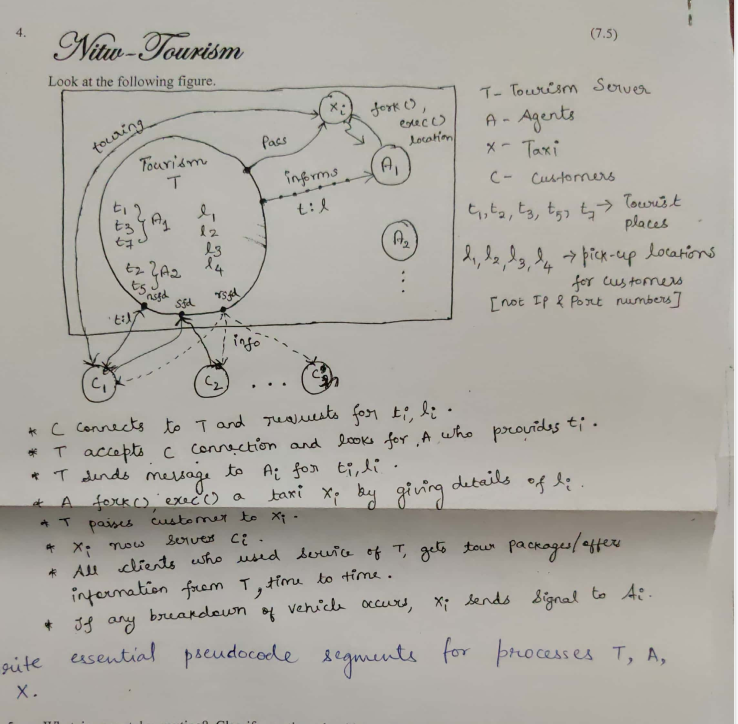 4.
(7.5)
Nitw-Tourism
Look at the following figure.
touring
Xi
fork(),
exec()
location
Pass
A1
informs
t:l
Tourism
T
t1
t3
t7
A1
l1
l2
l3
l4
t2
t5
A2
A2
nsfd
sfd
rsfd
t:l
info
C1
C2
...
T- Tourism Server
A - Agents
X - Taxi
C- Customers
t1, t2, t3, t5, t7 → Tourist
places
l1, l2, l3, l4 → pick-up locations
for customers
[not IP & Port numbers]
* C connects to T and requests for ti, li.
* T accepts C connection and looks for A who provides ti.
* T sends message to Ai for ti, li.
* A fork() exec() a taxi Xi by giving details of li.
* T passes customer to Xi.
* Xi now serves Ci.
* All clients who used service of T, gets tour packages/offers
information from T, time to time.
* If any breakdown of vehicle occurs, Xi sends signal to Ai.
essential pseudocode segments for processes T, A,
X.